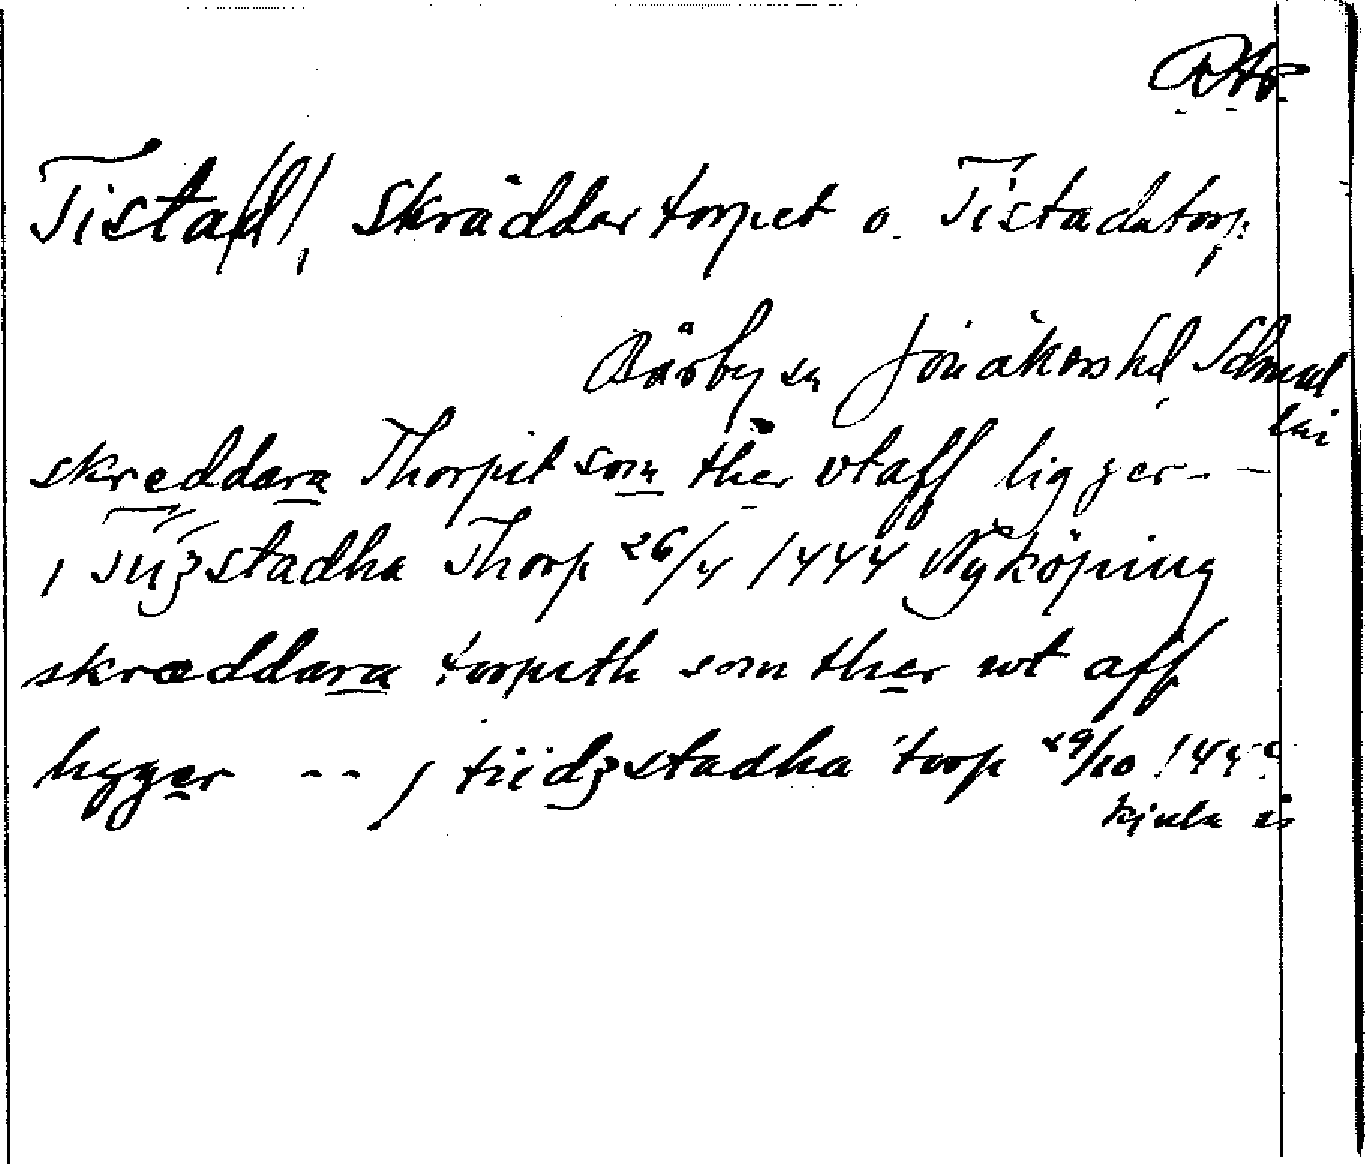 RAp
Tista(d), Skräddartorpet o. Tistadatorp
Bärbo sn Jönåkers hd Södermanl
län
skreddara Thorpit som ther vtaff ligger - -
j Tiizstadha Thorp 26/4 1444 Nyköping
skræddara torpith som ther wt aff
ligger - - j tiidzstadha torp 29/10
Kjula ås